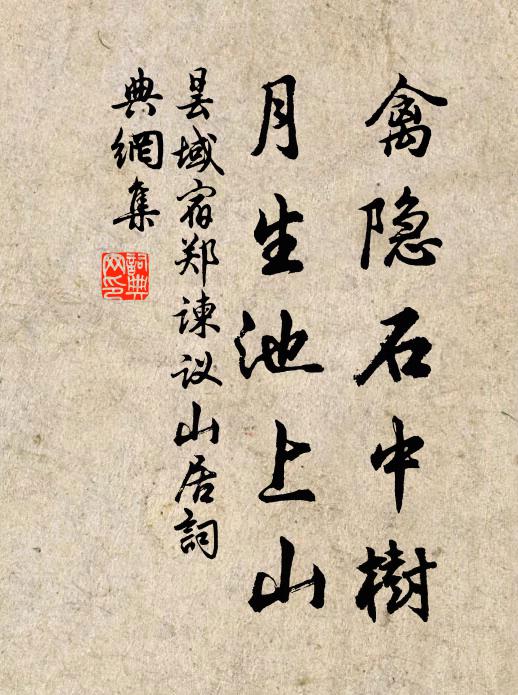 禽隐石中樹
月生池上山
昙域宿郑谏议山居詞
典網集
詞典
网印